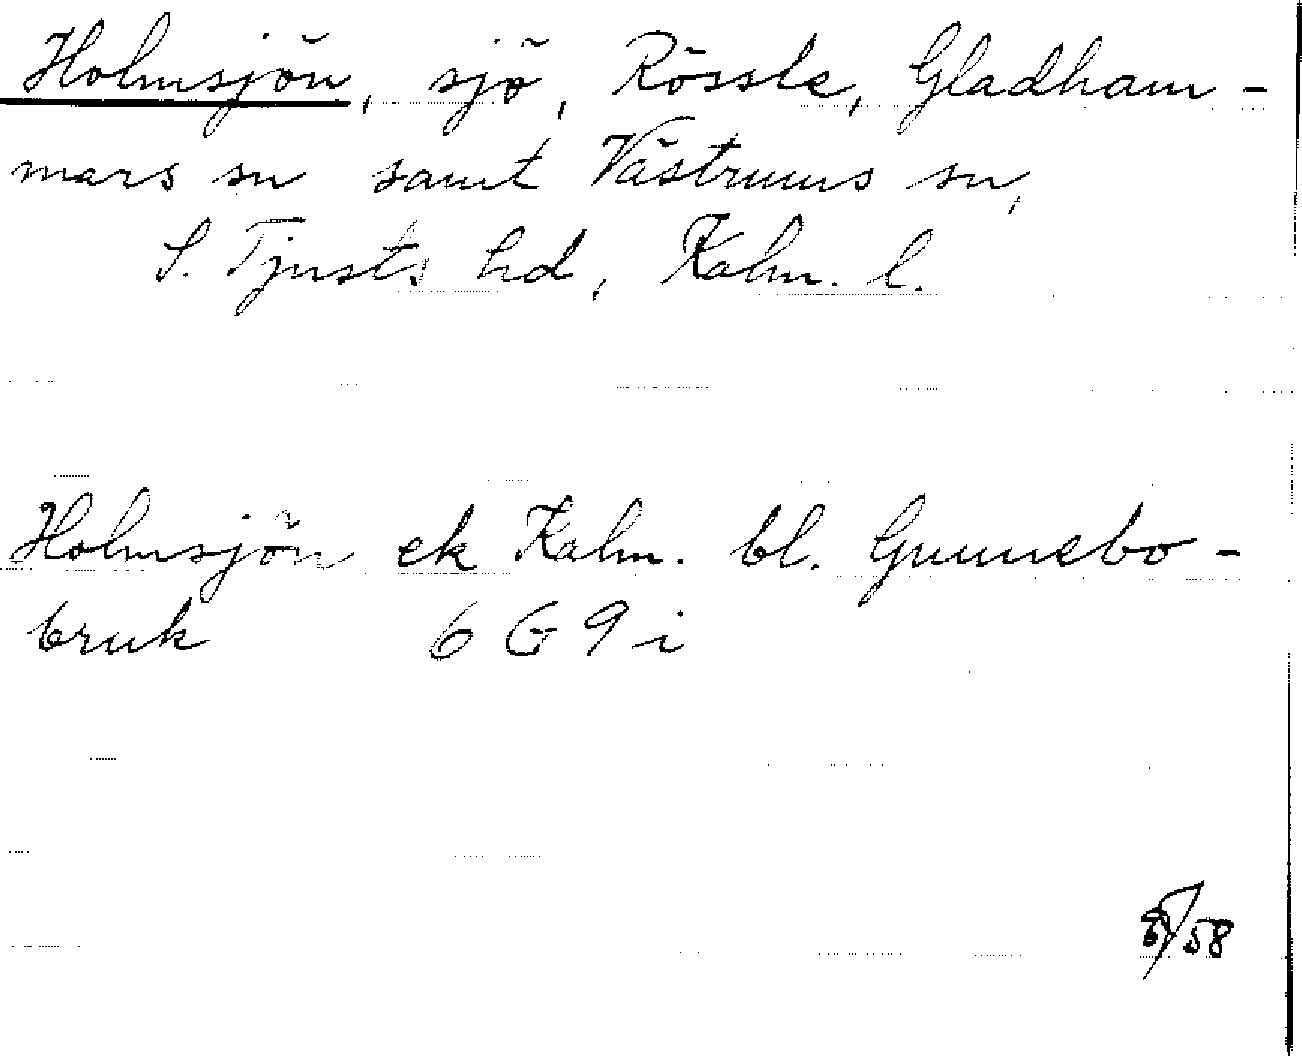 Holmsjön, sjö, Rössle, Gladham-
mars sn samt Västrums sn,
S. Tjusts hd, Kalm. l.
Holmsjön ek Kalm. bl. Gunnebo-
bruk 6 G 9 i
/58